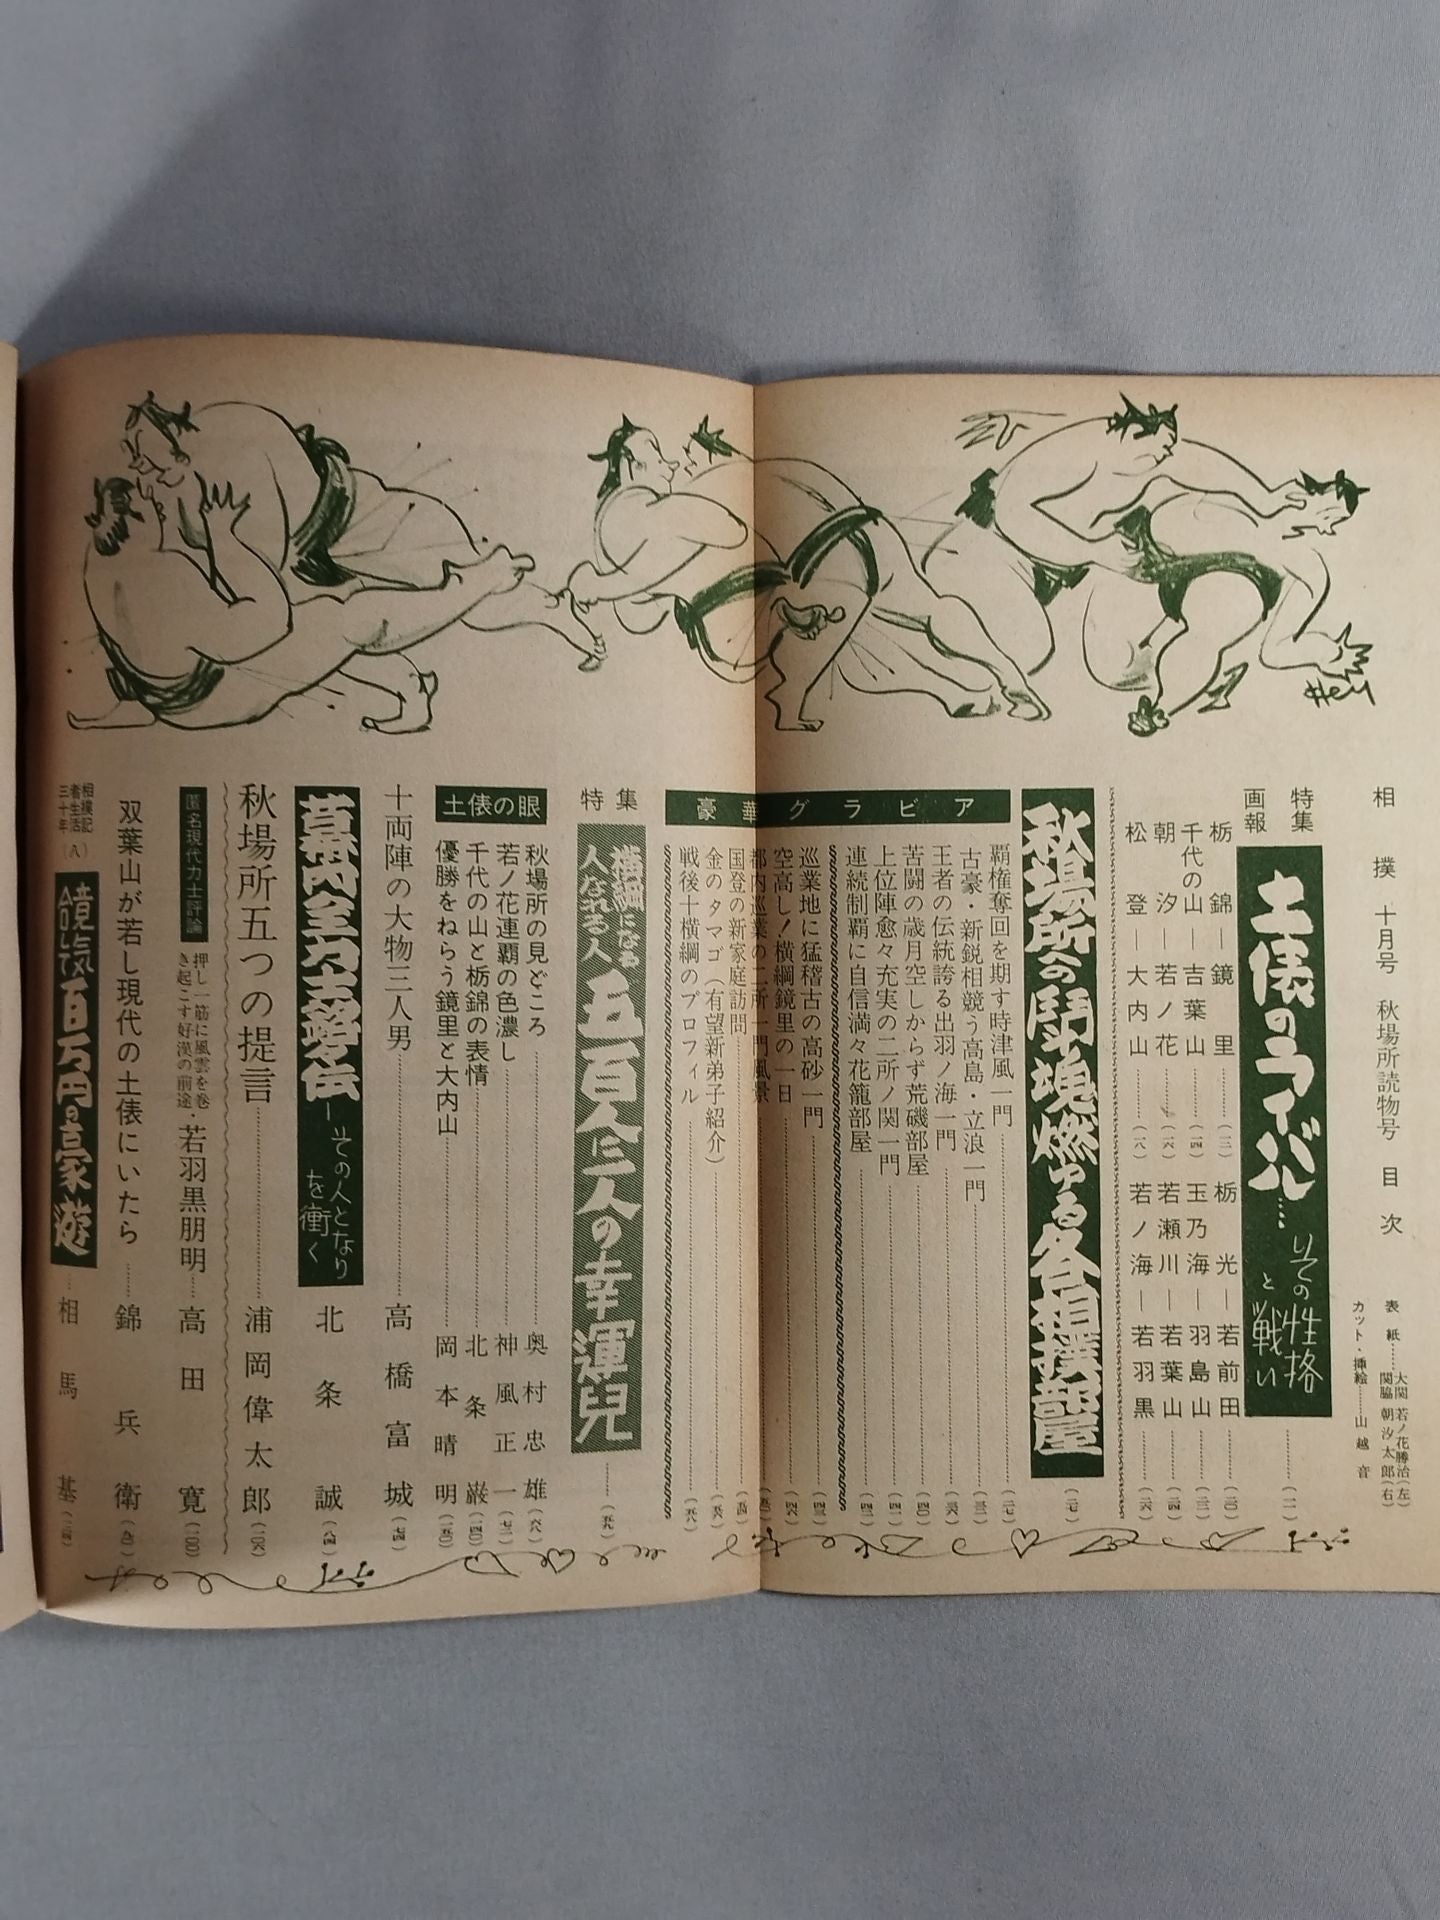 相撲 十月号 秋場所読物号 目次
表紙……大関 若ノ花勝治(左)
関脇 朝汐太郎(右)
カット・挿絵……山越音
特集
画報
土俵のライバル……その性格
と戦い……(一一)
栃錦―鏡里……(一二)
栃光―若前田……(二〇)
千代の山―吉葉山……(一四)
玉乃海―羽島山……(二二)
朝汐―若ノ花……(一六)
若瀬川―若葉山……(二四)
松登―大内山……(一八)
若ノ海―若羽黒……(二六)
秋場所への闘魂燃ゆる各相撲部屋……(二七)
豪華グラビア
覇権奪回を期す時津風一門
古豪・新鋭相競う高島・立浪一門
王者の伝統誇る出羽ノ海一門
苦闘の歳月空しからず荒磯部屋
上位陣愈々充実の二所ノ関一門
連続制覇に自信満々花籠部屋
巡業地に猛稽古の高砂一門
空高し!横綱鏡里の一日
都内巡業の二所一門風景
国登の新家庭訪問
金のタマゴ(有望新弟子紹介)
戦後十横綱のプロフィル……(五八)
特集
横綱になる人
なれる人
五百人に一人の幸運兒……(五九)
土俵の眼
秋場所の見どころ……奥村忠雄(六八)
若ノ花連覇の色濃し……神風正一(七二)
千代の山と栃錦の表情……北条巌(一四〇)
優勝をねらう鏡里と大内山……岡本晴明(一五〇)
十両陣の大物三人男……高橋富城(七四)
幕内全力士銘々伝―その人となり
を衝く
北条誠(八四)
秋場所五つの提言……浦岡偉太郎(一〇六)
匿名現代力士評論
押し一筋に風雲を巻
き起こす好漢の前途・若羽黒朋明……高田寛(一〇〇)
双葉山が若し現代の土俵にいたら……錦兵衛(九〇)
相撲記
者生活
三十年(八)
百万円の豪遊……相馬基